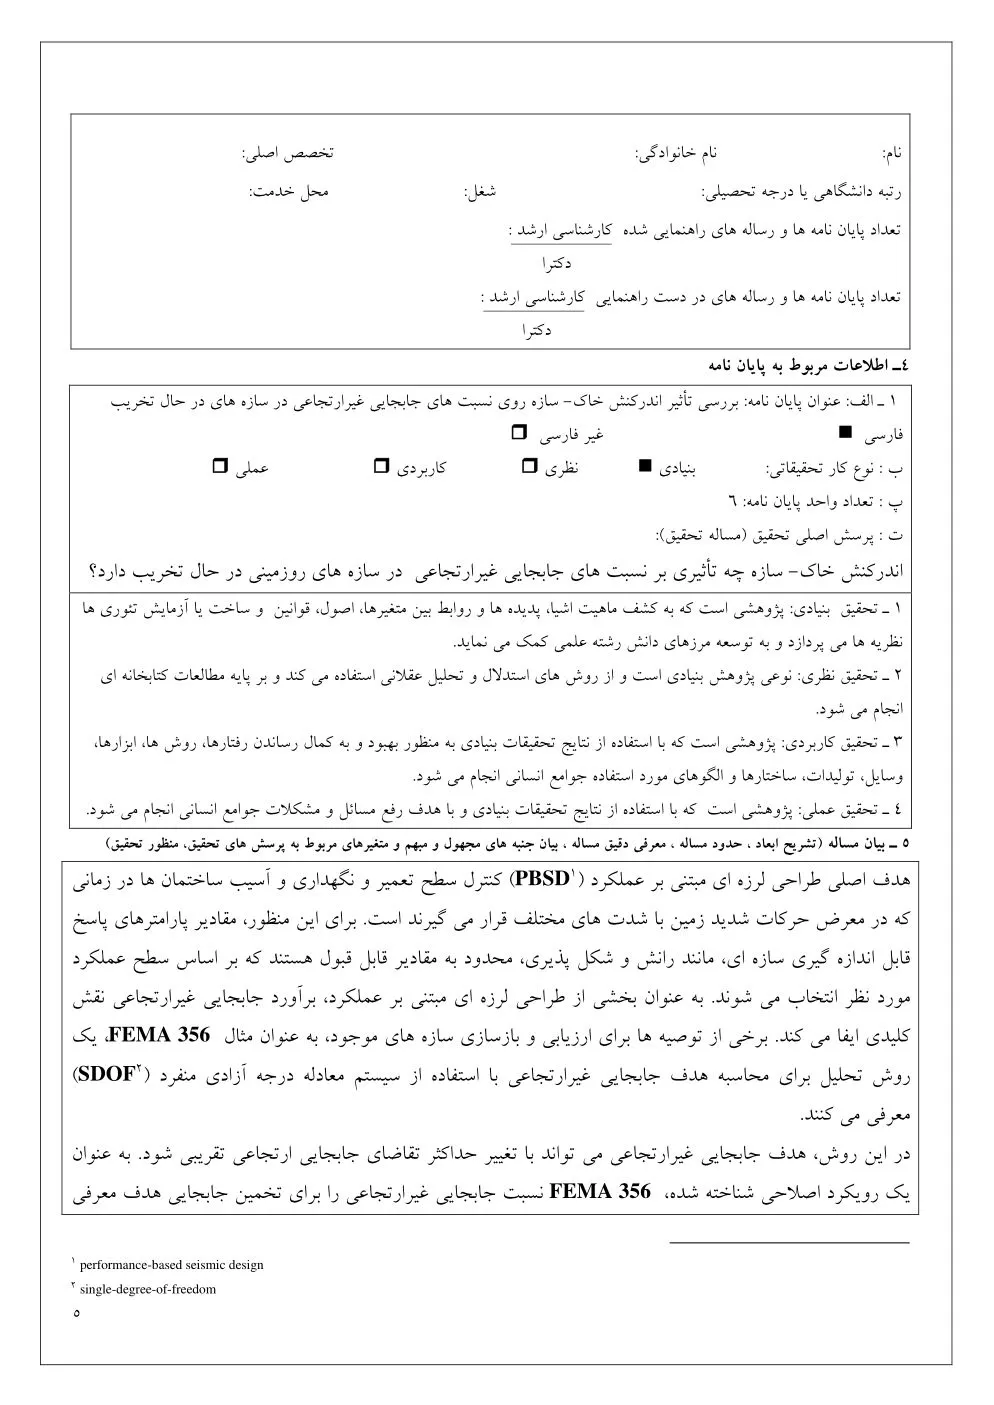 نام: نام خانوادگی: تخصص اصلی:
رتبه دانشگاهی یا درجه تحصیلی: شغل: محل خدمت:
تعداد پایان نامه ها و رساله های راهنمایی شده کارشناسی ارشد :
دکترا
تعداد پایان نامه ها و رساله های در دست راهنمایی کارشناسی ارشد :
دکترا
٤ــ اطلاعات مربوط به پایان نامه
١ ـ الف: عنوان پایان نامه: بررسی تأثیر اندرکنش خاک- سازه روی نسبت های جابجایی غیرارتجاعی در سازه های در حال تخریب
فارسی ■ غیر فارسی ❒
ب : نوع کار تحقیقاتی: بنیادی ■ نظری ❒ کاربردی ❒ عملی ❒
پ : تعداد واحد پایان نامه: ٦
ت : پرسش اصلی تحقیق (مساله تحقیق):
اندرکنش خاک- سازه چه تأثیری بر نسبت های جابجایی غیرارتجاعی در سازه های روزمینی در حال تخریب دارد؟
١ ـ تحقیق بنیادی: پژوهشی است که به کشف ماهیت اشیا، پدیده ها و روابط بین متغیرها، اصول، قوانین و ساخت یا آزمایش تئوری ها
نظریه ها می پردازد و به توسعه مرزهای دانش رشته علمی کمک می نماید.
٢ ـ تحقیق نظری: نوعی پژوهش بنیادی است و از روش های استدلال و تحلیل عقلانی استفاده می کند و بر پایه مطالعات کتابخانه ای
انجام می شود.
٣ ـ تحقیق کاربردی: پژوهشی است که با استفاده از نتایج تحقیقات بنیادی به منظور بهبود و به کمال رساندن رفتارها، روش ها، ابزارها،
وسایل، تولیدات، ساختارها و الگوهای مورد استفاده جوامع انسانی انجام می شود.
٤ ـ تحقیق عملی: پژوهشی است که با استفاده از نتایج تحقیقات بنیادی و با هدف رفع مسائل و مشکلات جوامع انسانی انجام می شود.
٥ ــ بیان مساله (تشریح ابعاد ، حدود مساله ، معرفی دقیق مساله ، بیان جنبه های مجهول و مبهم و متغیرهای مربوط به پرسش های تحقیق، منظور تحقیق)
هدف اصلی طراحی لرزه ای مبتنی بر عملکرد (PBSD١) کنترل سطح تعمیر و نگهداری و آسیب ساختمان ها در زمانی
که در معرض حرکات شدید زمین با شدت های مختلف قرار می گیرند است. برای این منظور، مقادیر پارامترهای پاسخ
قابل اندازه گیری سازه ای، مانند رانش و شکل پذیری، محدود به مقادیر قابل قبول هستند که بر اساس سطح عملکرد
مورد نظر انتخاب می شوند. به عنوان بخشی از طراحی لرزه ای مبتنی بر عملکرد، برآورد جابجایی غیرارتجاعی نقش
کلیدی ایفا می کند. برخی از توصیه ها برای ارزیابی و بازسازی سازه های موجود، به عنوان مثال FEMA 356، یک
روش تحلیل برای محاسبه هدف جابجایی غیرارتجاعی با استفاده از سیستم معادله درجه آزادی منفرد (SDOF٢)
معرفی می کنند.
در این روش، هدف جابجایی غیرارتجاعی می تواند با تغییر حداکثر تقاضای جابجایی ارتجاعی تقریبی شود. به عنوان
یک رویکرد اصلاحی شناخته شده، FEMA 356 نسبت جابجایی غیرارتجاعی را برای تخمین جابجایی هدف معرفی
١ performance-based seismic design
٢ single-degree-of-freedom
٥